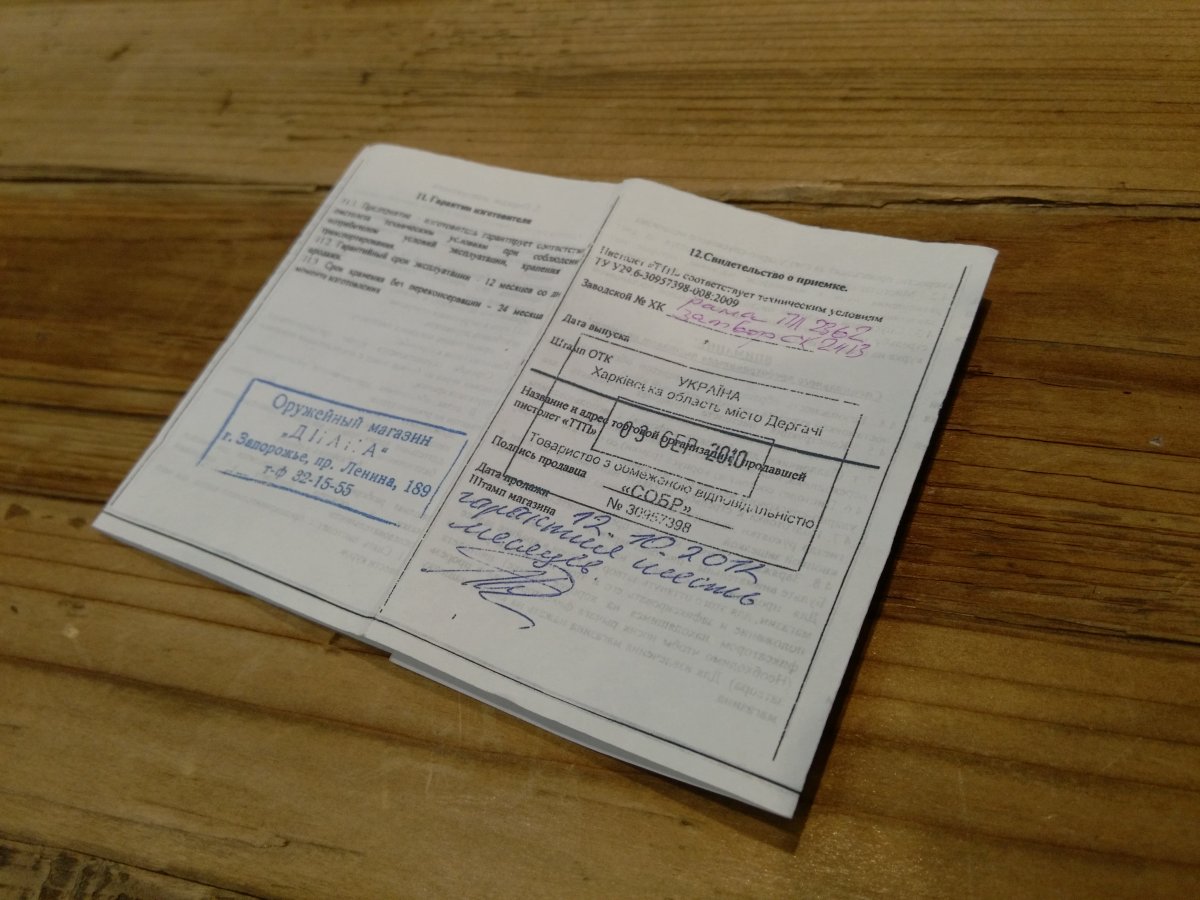 11. Гарантии изготовителя
11.1. Предприятие изготовитель гарантирует соответствие
пистолета техническим условиям при соблюдении
потребителем условий эксплуатации, хранения
транспортирования.
11.2. Гарантийный срок эксплуатации – 12 месяцев со дня
продажи.
11.3. Срок хранения без переконсервации – 24 месяца
момента изготовления
Оружейный магазин
г. Запорожье, пр. Ленина, 189
т-ф 32-15-55
12.Свидетельство о приемке.
Пистолет «ТТП» соответствует техническим условиям
ТУ У29.6-30957398-008:2009
Заводской № ХК рама ТП 2862
затвор СК 2413
Дата выпуска
Штамп ОТК
УКРАЇНА
Харківська область місто Дергачі
Название и адрес торговой организации, продавшей
пистолет «ТТП»
03 СЕР 2010
Товариство з обмеженою відповідальністю
Подпись продавца
«СОБР»
№ 30957398
Дата продажи
Штамп магазина
12.10.2012
гарантия шесть
месяцев.